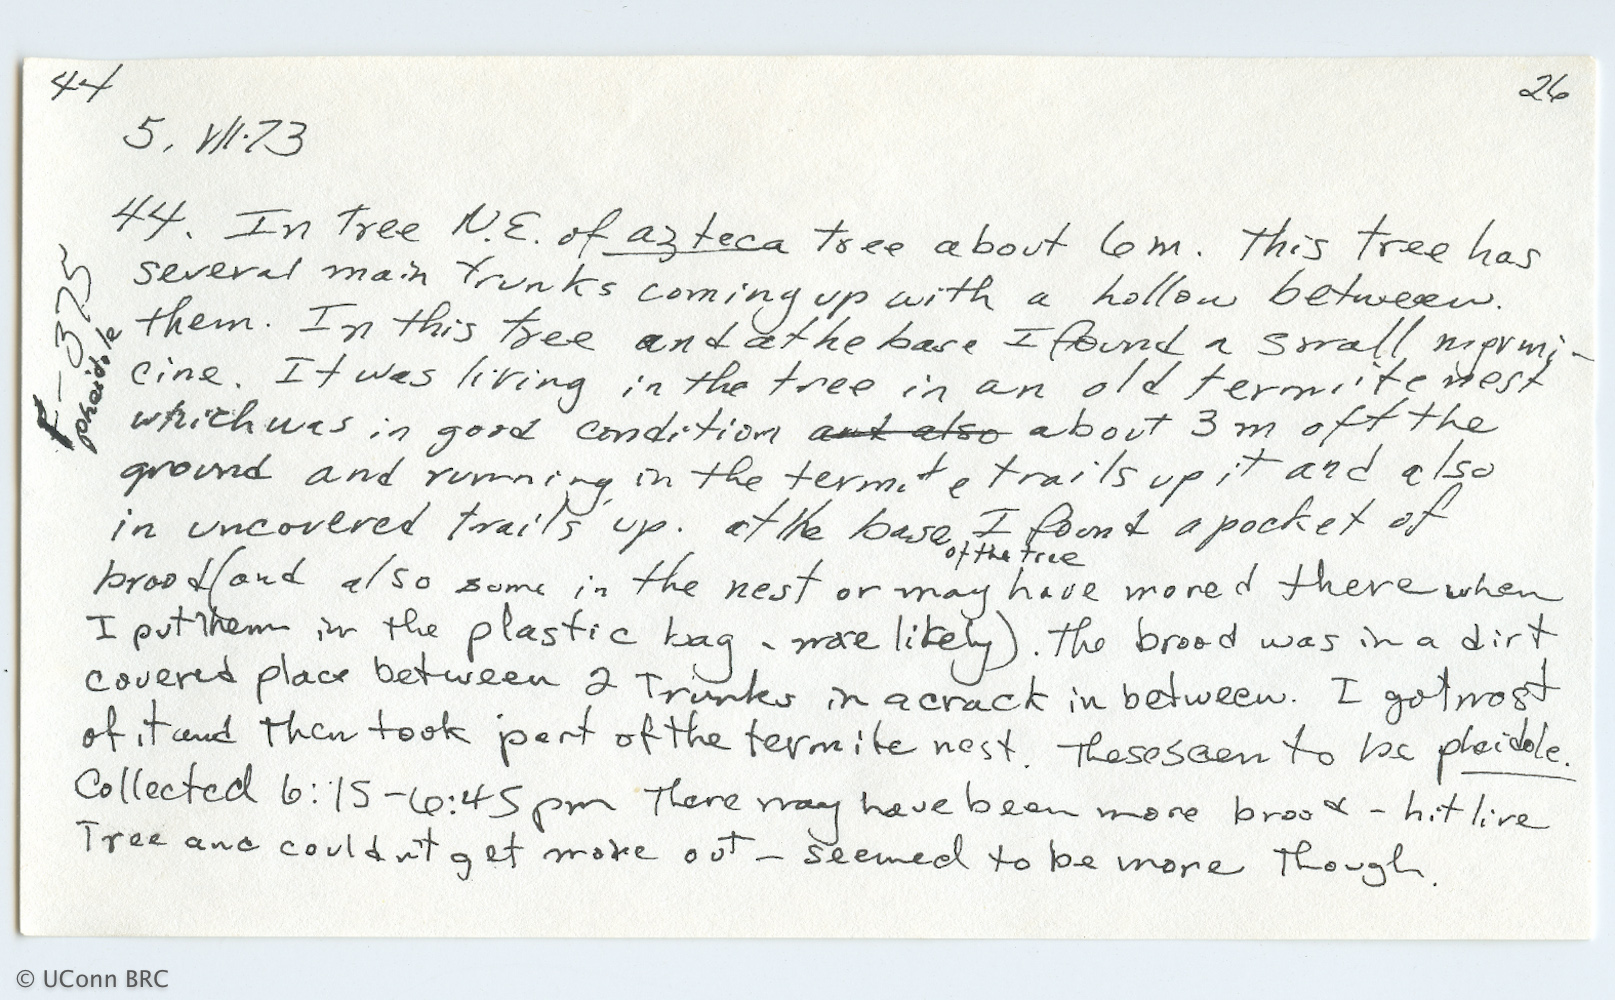 44
26
5. VII.73
F-375
pheidole
44. In tree N.E. of azteca tree about 6m. This tree has
several main trunks coming up with a hollow between.
them. In this tree and at the base I found a small myrmi-
cine. It was living in the tree in an old termite nest
which was in good condition and also about 3 m off the
ground and running in the termite trails up it and also
in uncovered trails up. at the base of the tree I found a pocket of
brood (and also some in the nest or may have moved there when
I put them in the plastic bag - more likely). The brood was in a dirt
covered place between 2 Trunks in a crack in between. I got most
of it and then took part of the termite nest. These seem to be pheidole.
Collected 6:15-6:45 pm There may have been more brood - hit live
Tree and couldn't get more out - seemed to be more though.
© UConn BRC